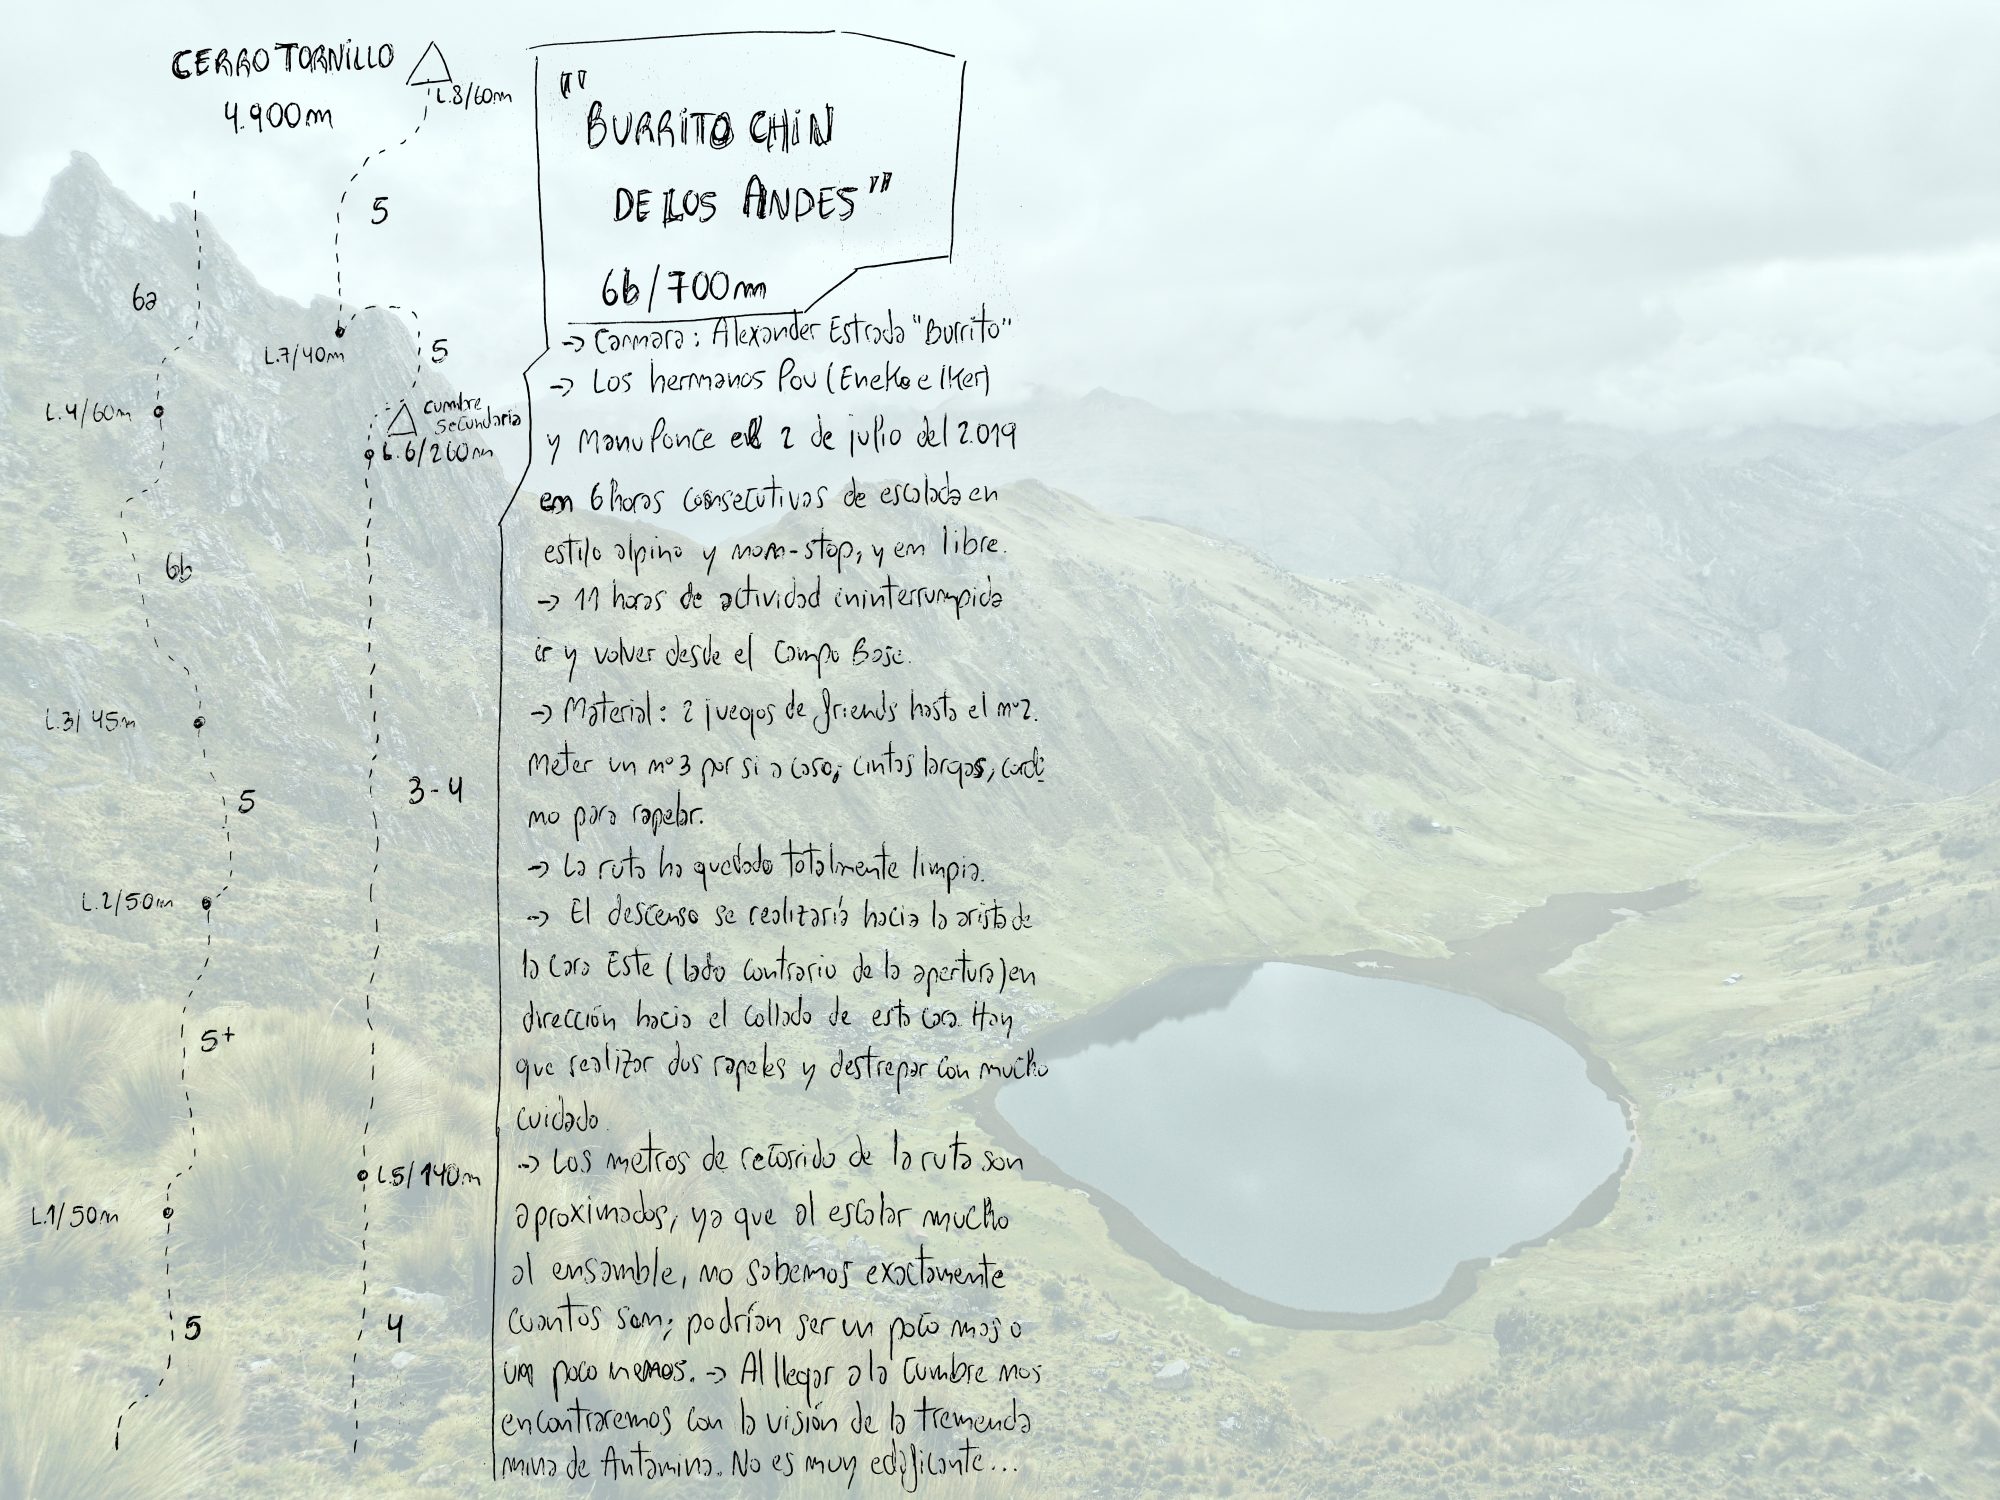 CERRO TORNILLO
4.900m
L.8/60m
5
6a
L.7/40m
5
L.4/60m
cumbre
secundaria
L.6/260m
6b
L.3/45m
3-4
5
L.2/50m
5+
L.5/140m
L.1/50m
5
4
"BURRITO CHIN
DE LOS ANDES"
6b/700m
→ Cámara: Alexander Estrada "Burrito"
→ Los hermanos Pou (Eneko e Iker)
y Manu Ponce el 2 de julio del 2.019
en 6 horas consecutivas de escalada en
estilo alpino y non-stop, y en libre.
→ 11 horas de actividad ininterrumpida
ir y volver desde el Campo Base.
→ Material: 2 juegos de friends hasta el nº2.
Meter un nº3 por si a caso; cintas largas, cordi
no para rapelar.
→ La ruta ha quedado totalmente limpia.
→ El descenso se realizaría hacia la arista de
la cara Este (lado contrario de la apertura) en
dirección hacia el collado de esta cara. Hay
que realizar dos rapeles y destrepar con mucho
cuidado.
→ Los metros de recorrido de la ruta son
aproximados, ya que al escalar mucho
al ensamble, no sabemos exactamente
cuantos son; podrían ser un poco mas o
un poco menos. → Al llegar a la cumbre nos
encontraremos con la visión de la tremenda
mina de Antamina. No es muy edificante...